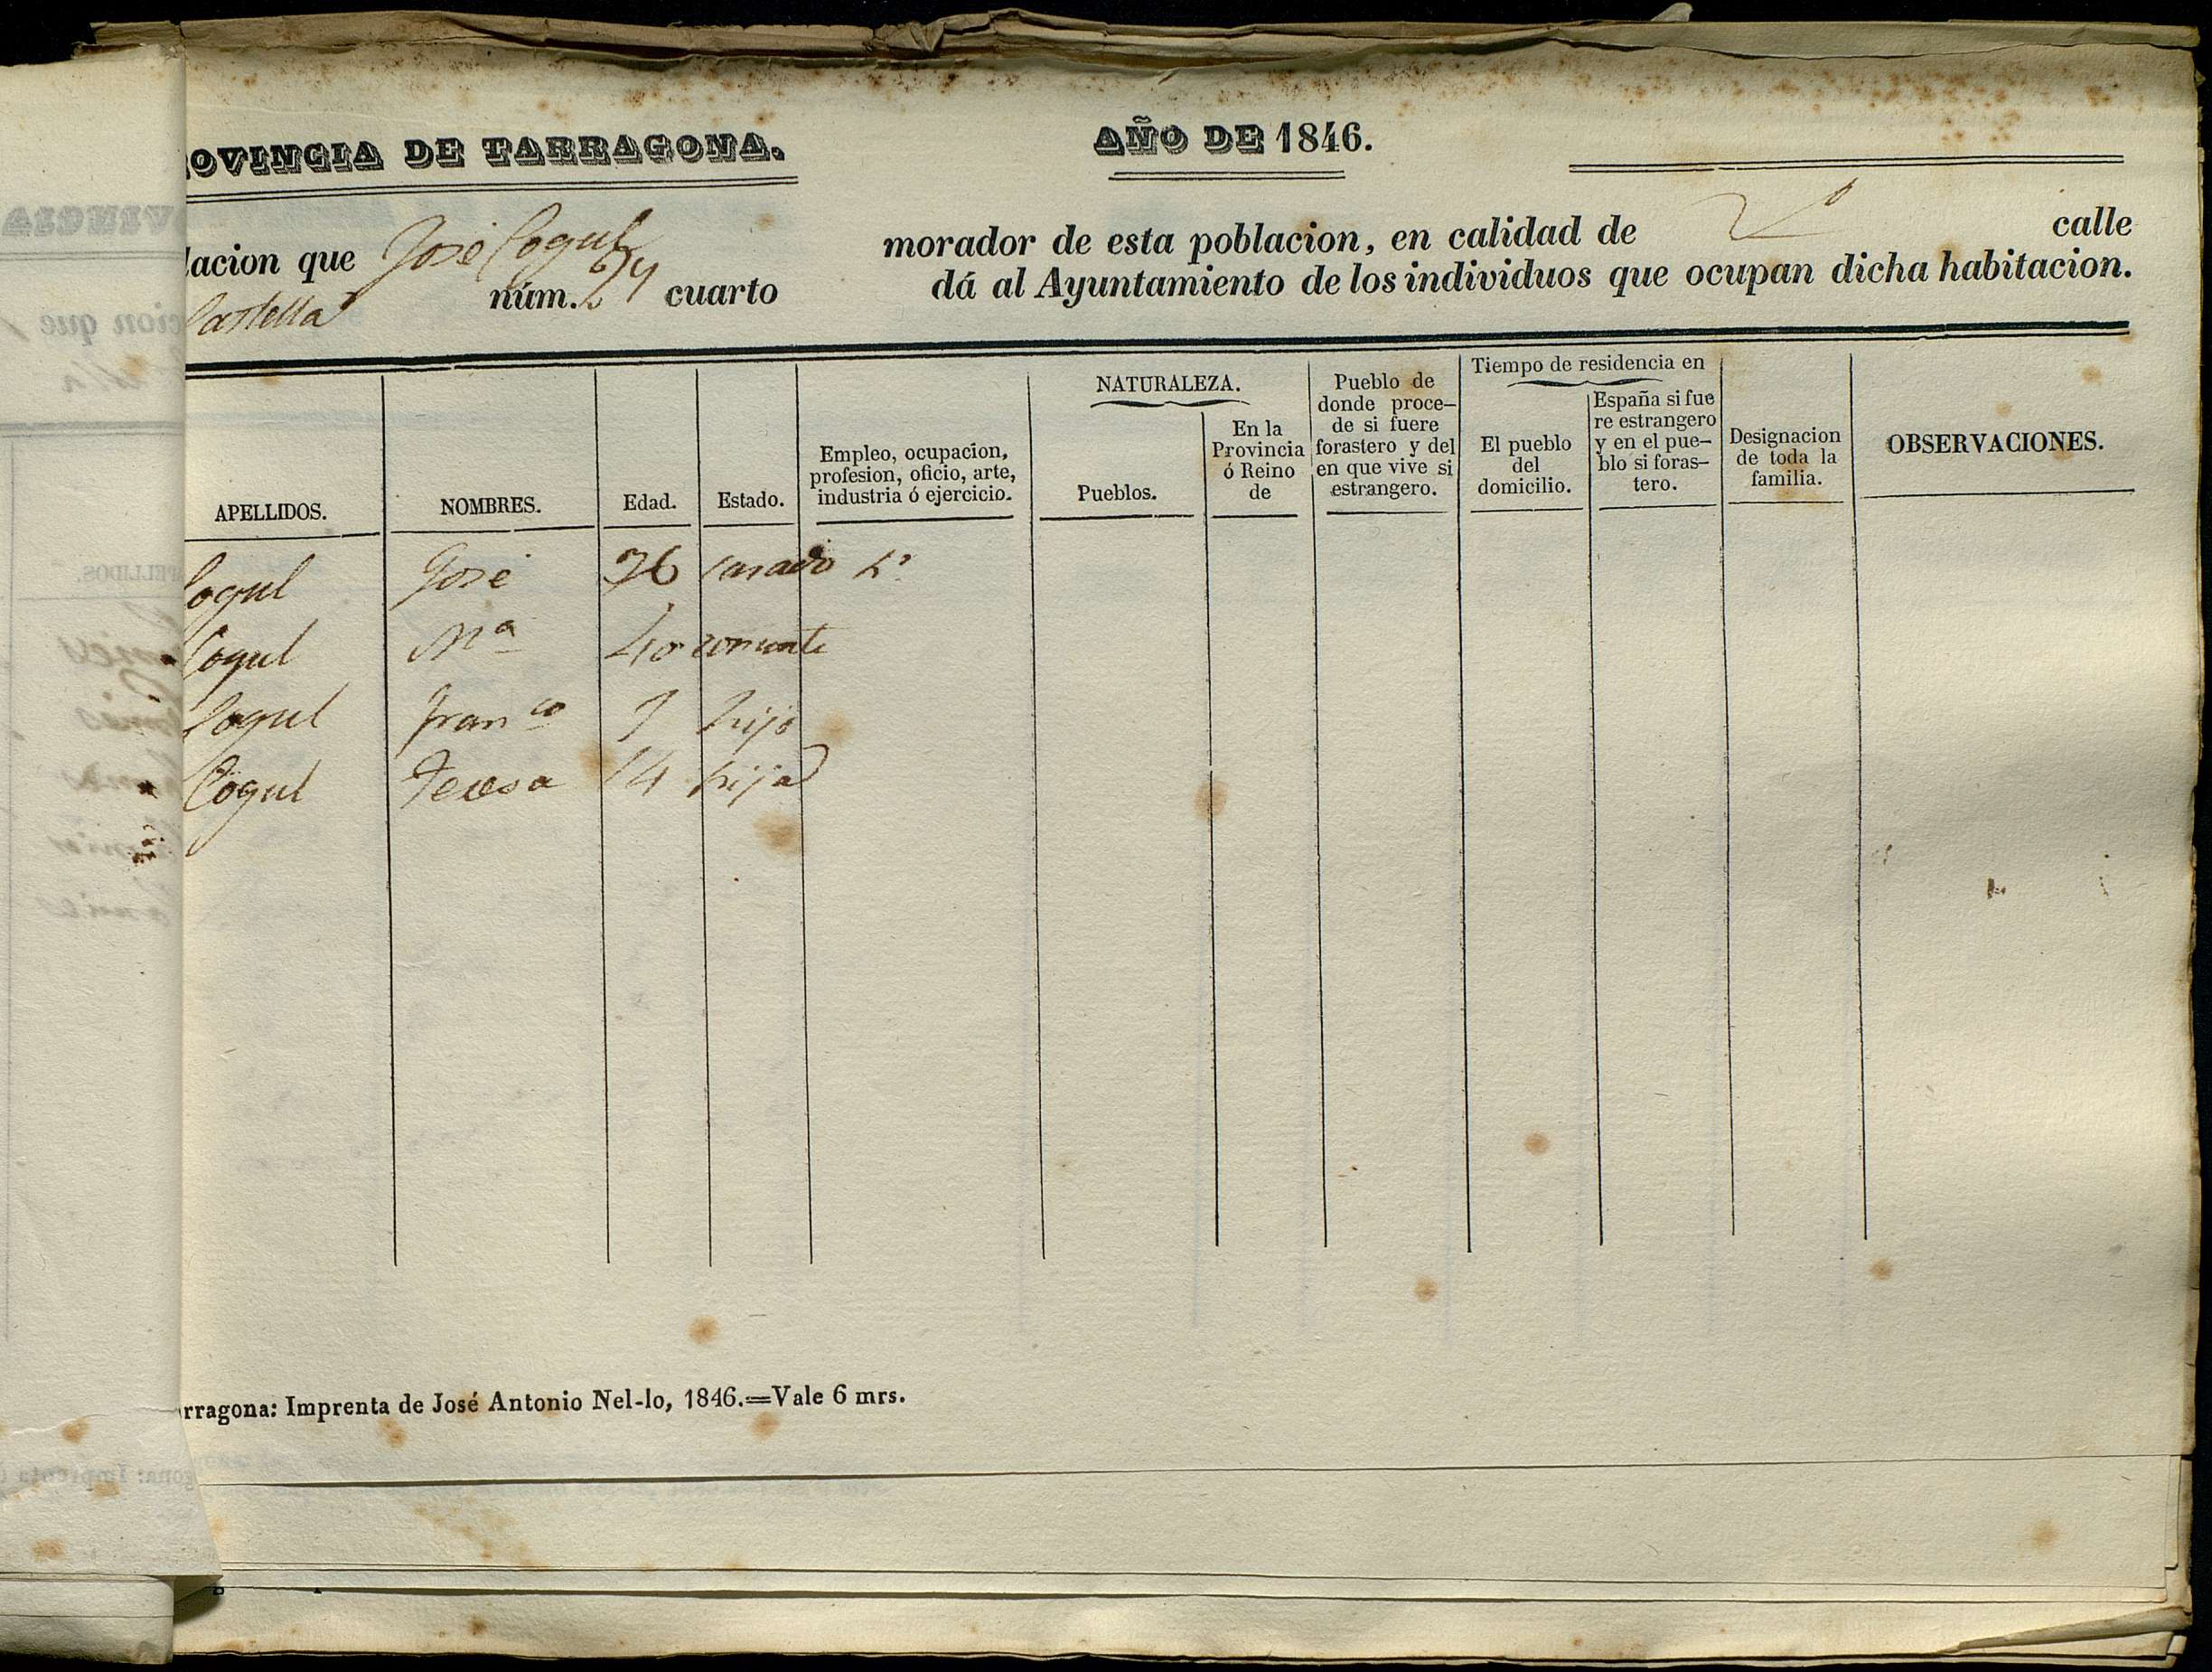 OVINCIA DE TARRAGONA.
AÑO DE 1846.
lacion que José Cogul morador de esta poblacion, en calidad de calle
Castella núm. 24 cuarto dá al Ayuntamiento de los individuos que ocupan dicha habitacion.
APELLIDOS.
NOMBRES.
Edad.
Estado.
Empleo, ocupacion,
profesion, oficio, arte,
industria ó ejercicio.
NATURALEZA.
Pueblos.
En la
Provincia
ó Reino
de
Pueblo de
donde proce-
de si fuere
forastero y del
en que vive si
estrangero.
Tiempo de residencia en
El pueblo
del
domicilio.
España si fue
re estrangero
y en el pue-
blo si foras-
tero.
Designacion
de toda la
familia.
OBSERVACIONES.
Cogul José 36 casado
Cogul Mª 40 consorte
Cogul Franco 7 hijo
Cogul Teresa 14 hija
rragona: Imprenta de José Antonio Nel-lo, 1846.=Vale 6 mrs.